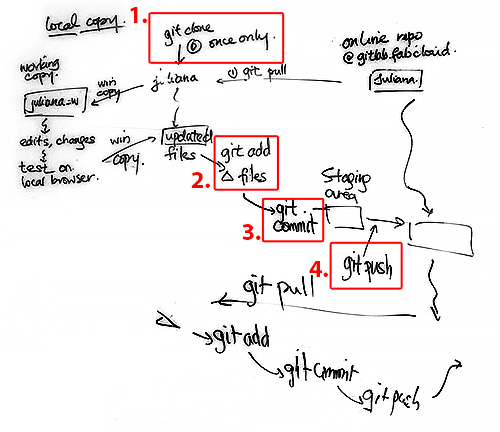 local copy.
1.
git clone
⓪ once only.
online repo
@gitlab.fabcloud.
working
copy.
win
copy
juliana
① git pull
juliana.
juliana-w
edits, changes
test on
local browser.
win
copy.
updated
files
git add
△ files
2.
Staging
area
3.
git
commit
4.
git push
git pull
git add
git commit
git push